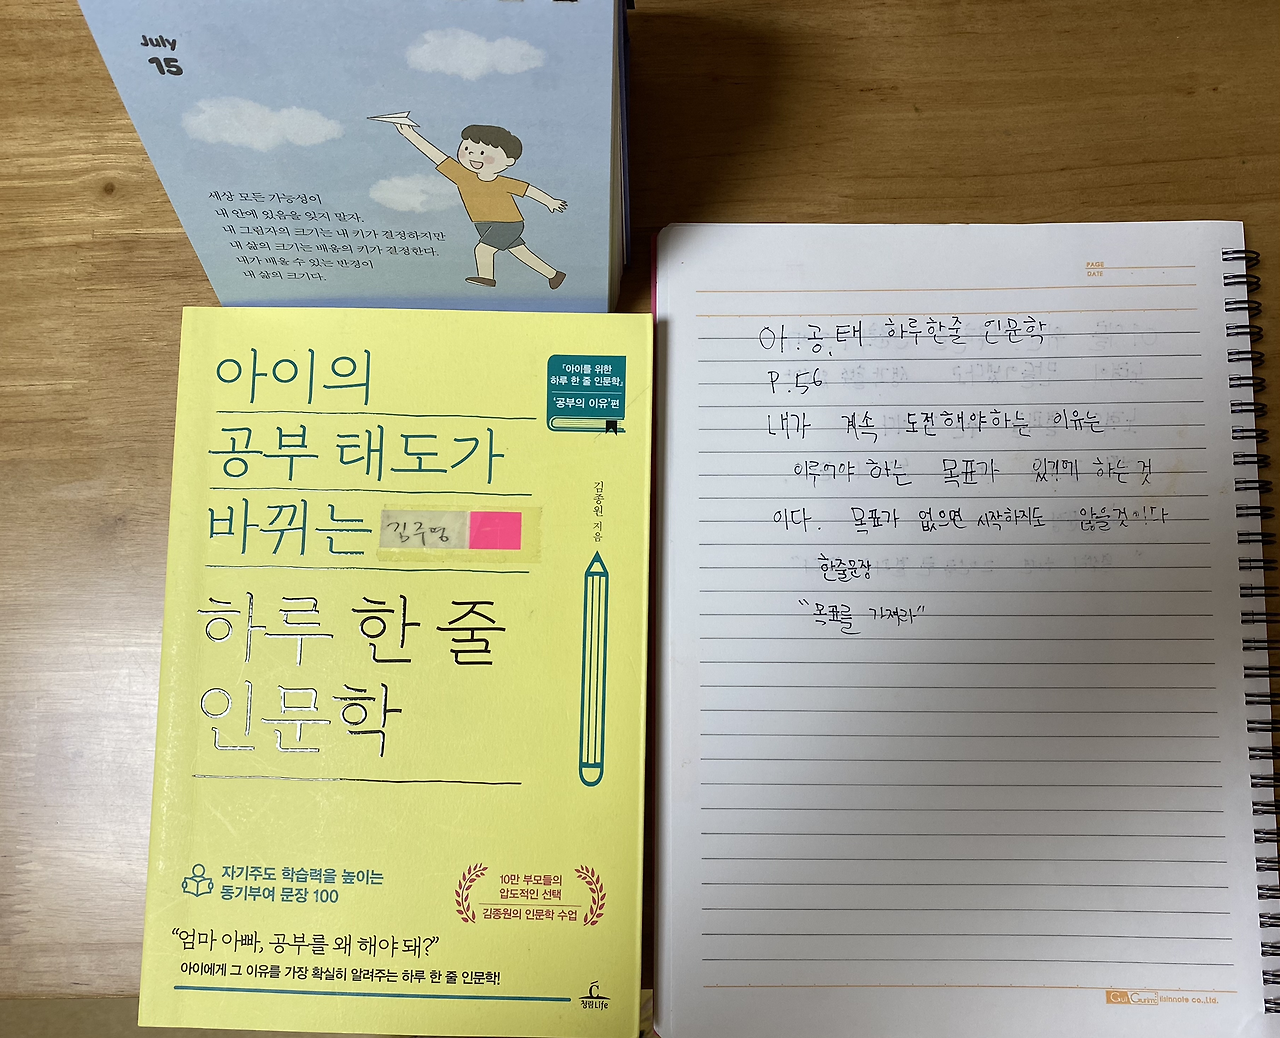 July
15
세상 모든 가능성이
내 안에 있음을 잊지 말자.
내 그림자의 크기는 내 키가 결정하지만
내 삶의 크기는 배움의 키가 결정한다.
내가 배울 수 있는 반경이
내 삶의 크기다.
아이의
공부 태도가
바뀌는
김주영
하루 한 줄
인문학
『아이를 위한
하루 한 줄 인문학』
'공부의 이유'편
김종원 지음
자기주도 학습력을 높이는
동기부여 문장 100
10만 부모들의
압도적인 선택
김종원의 인문학 수업
“엄마 아빠, 공부를 왜 해야 돼?”
아이에게 그 이유를 가장 확실히 알려주는 하루 한 줄 인문학!
청림Life
PAGE
DATE
아.공.태 하루한줄 인문학
P.56
내가 계속 도전해야하는 이유는
이루어야 하는 목표가 있기에 하는것
이다. 목표가 없으면 시작하지도 않을것이다
한줄문장
"목표를 가져라"
co.,Ltd.